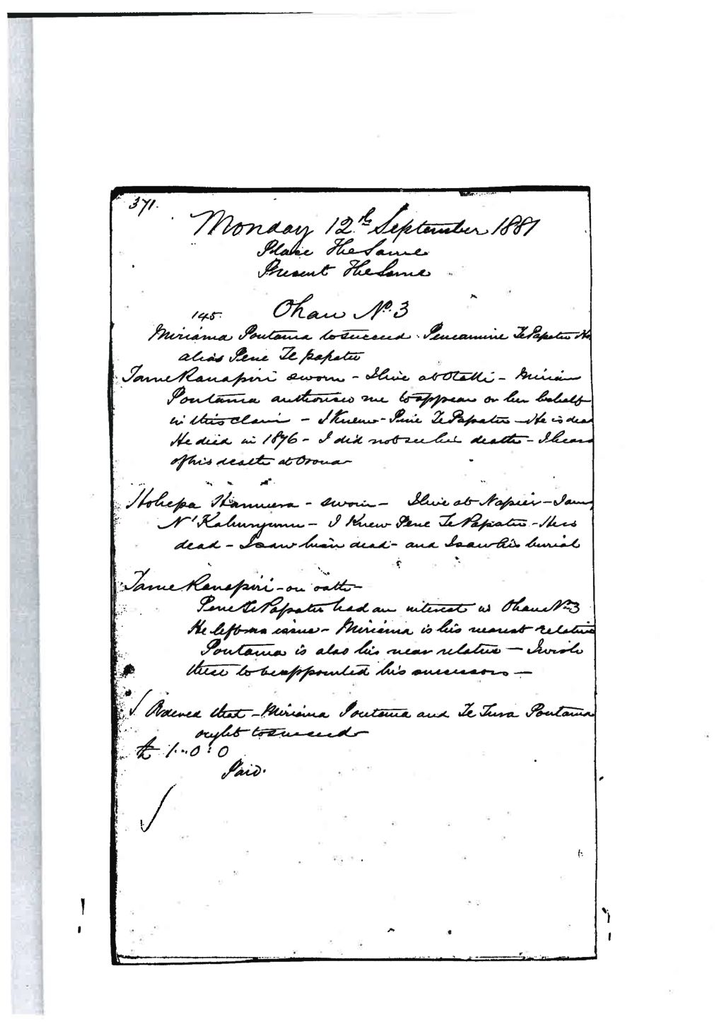 371.
Monday 12th September 1881
Place The Same
Present The Same
145. Ohau No. 3
Miriama Poutama to succeed Peneamine Te Papatu
alias Pene Te Papatu
Tame Ranapiri sworn - I live at Otaki - Miriam
Poutama authorises me to appear on her behalf
in this claim - I knew Pene Te Papatu - He is dea
He died in 1876 - I did not see his death - I hear
of his death at Oroua
Hohepa sworn - I live at Napier - I am
N' Kahungunu - I knew Pene Te Papatu - He is
dead - I saw him dead - and I saw his burial
Tame Ranapiri - on oath -
Pene Te Papatu had an interest in Ohau No 3
He left no issue - Miriama is his nearest relative
Poutama is also his near relative - I wish
these to be appointed his successors -
Ordered that - Miriama Poutama and Te Tura Poutama
ought to succeed
1:0:0
Paid.